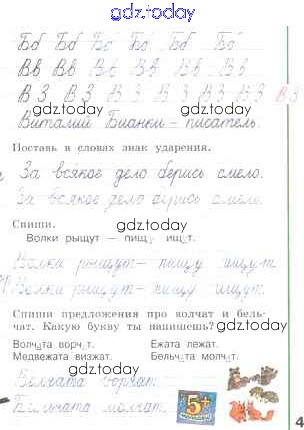 gdz.today
Бб Бб Бб Бб Бб Бб
Вв Вв Вв Вв Вв Вв
В З В З В З В З В З В З В З
gdz.today gdz.today
Виталий Бианки – писатель.
Поставь в словах знак ударения.
За всякое дело берись смело.
За всякое дело берись смело.
gdz.today
Спиши.
Волки рыщут – пищу ищут.
Волки рыщут – пищу ищут
gdz.today gdz.today
Волки рыщут – пищу ищут.
Спиши предложения про волчат и бель-
чат. Какую букву ты напишешь?
gdz.today
Волчата ворчат. Ежата лежат.
Медвежата визжат. Бельчата молчат.
Волчата ворчат.
Бельчата молчат.
5+
gdz.today gdz.today
4